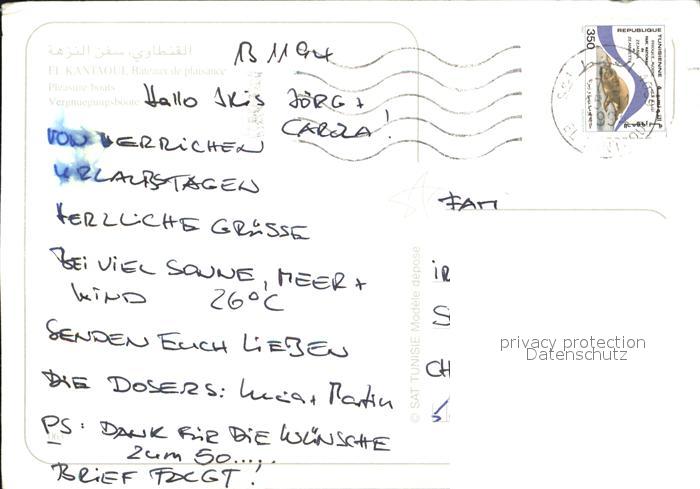 القنطاوي، سفن النزهة
EL KANTAOUI, Bateaux de plaisance
Pleasure boats
Vergnuegungsboote
Hallo Iris JÖRG +
CAROLA!
VON HERRLICHEN
URLAUBSTAGEN
HERZLICHE GRÜSSE
BEI VIEL SONNE, MEER +
WIND 26°C
SENDEN EUCH LIEBEN
DIE DOSERS: Lucia + Martin
PS: DANK FÜR DIE WÜNSCHE
ZUM 50.....
BRIEF FOLGT!
© SAT TUNISIE Modèle déposé
REPUBLIQUE
TUNISIENNE
350
FAM
S
CH
5
privacy protection
Datenschutz